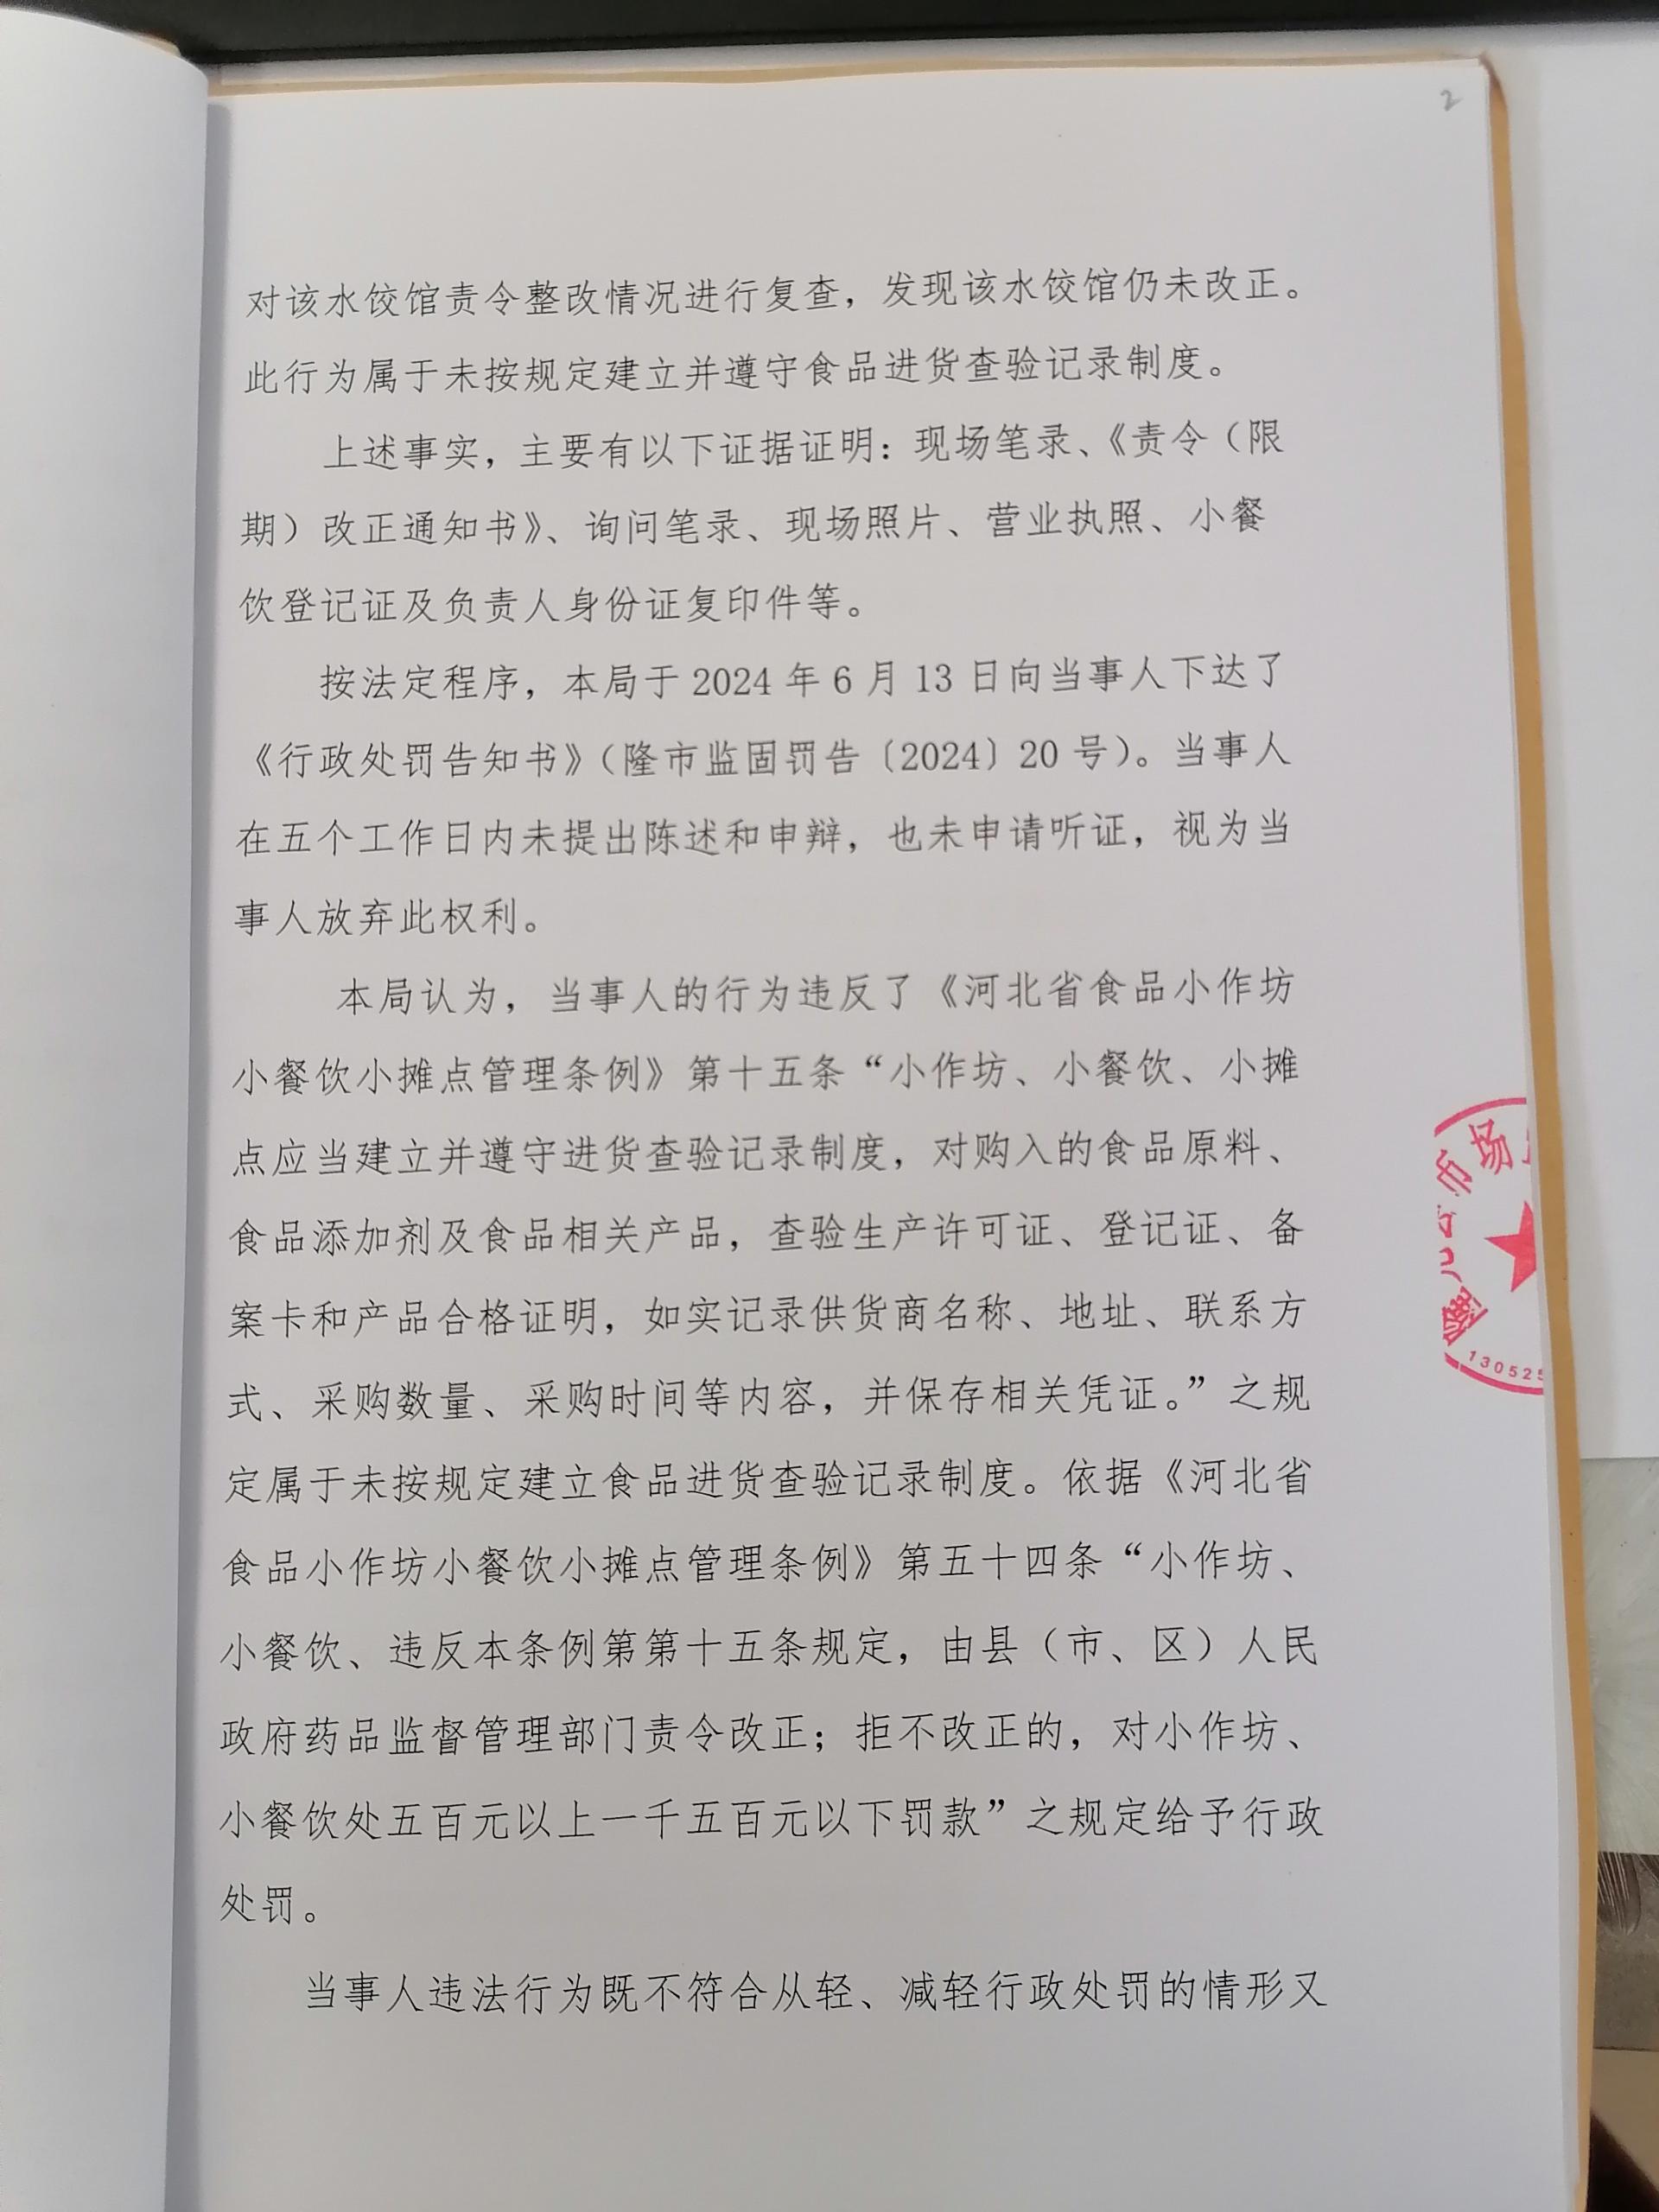 2
对该水饺馆责令整改情况进行复查，发现该水饺馆仍未改正。
此行为属于未按规定建立并遵守食品进货查验记录制度。
上述事实，主要有以下证据证明：现场笔录、《责令（限
期）改正通知书》、询问笔录、现场照片、营业执照、小餐
饮登记证及负责人身份证复印件等。
按法定程序，本局于 2024 年 6 月 13 日向当事人下达了
《行政处罚告知书》（隆市监固罚告〔2024〕20 号）。当事人
在五个工作日内未提出陈述和申辩，也未申请听证，视为当
事人放弃此权利。
本局认为，当事人的行为违反了《河北省食品小作坊
小餐饮小摊点管理条例》第十五条“小作坊、小餐饮、小摊
点应当建立并遵守进货查验记录制度，对购入的食品原料、
食品添加剂及食品相关产品，查验生产许可证、登记证、备
案卡和产品合格证明，如实记录供货商名称、地址、联系方
式、采购数量、采购时间等内容，并保存相关凭证。”之规
定属于未按规定建立食品进货查验记录制度。依据《河北省
食品小作坊小餐饮小摊点管理条例》第五十四条“小作坊、
小餐饮、违反本条例第第十五条规定，由县（市、区）人民
政府药品监督管理部门责令改正；拒不改正的，对小作坊、
小餐饮处五百元以上一千五百元以下罚款”之规定给予行政
处罚。
当事人违法行为既不符合从轻、减轻行政处罚的情形又
市场
隆
13052